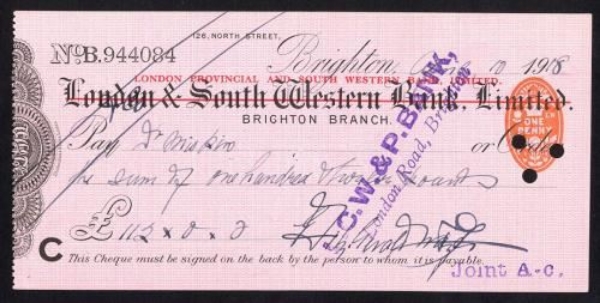 126, NORTH STREET,
No B.944084
Brighton, 10 1918
LONDON PROVINCIAL AND SOUTH WESTERN BANK, LIMITED.
London & South Western Bank, Limited.
BRIGHTON BRANCH.
ONE PENNY
Pay Dr or Order
the sum of one hundred & pounds
£ 112 . 0 . 0
L.C.W. & P. BANK,
London Road, Brighton
C This Cheque must be signed on the back by the person to whom it is payable.
Joint A-c.